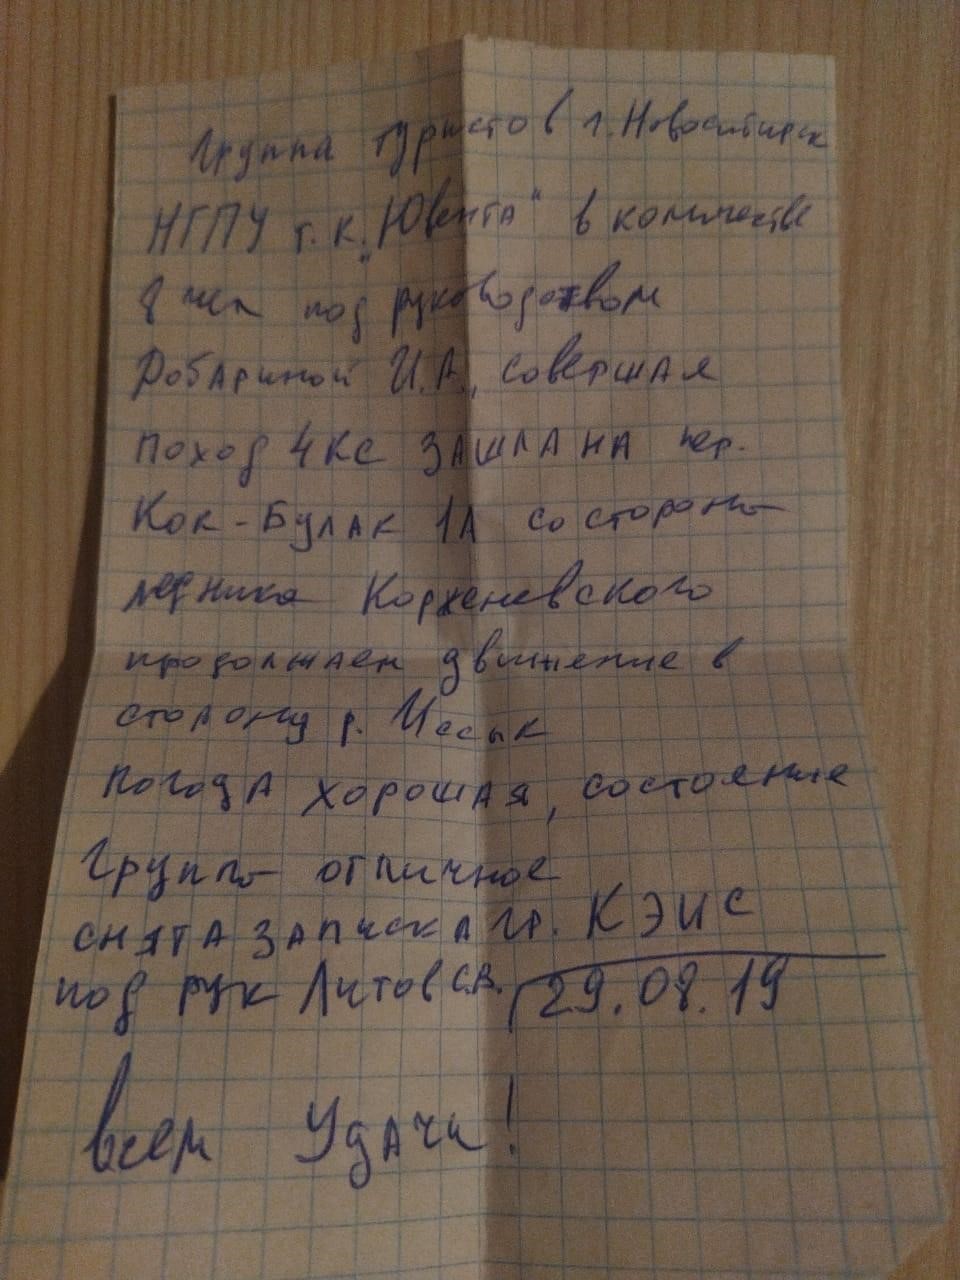 Группа туристов г. Новосибирск
НГПУ т.к. „Ювента" в количестве
8 чел под руководством
Добариной И.А., совершая
поход 4 кс зашла на пер.
Кок-Булак 1А со стороны
ледника Корженевского
продолжаем движение в
сторону р. Иссык
Погода хорошая, состояние
группы отличное
снята записка гр. КЭИС
под рук Литов С.В. 29.08.19
Всем Удачи!